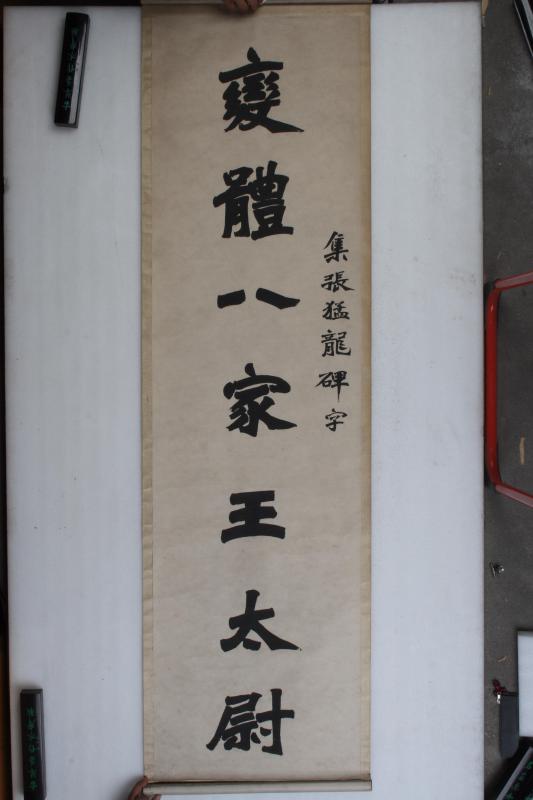 變體八家王太尉
集張猛龍碑字